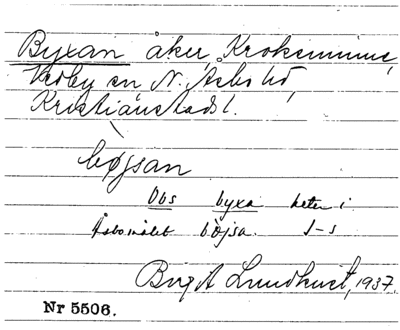 Byxan åker, Kroksminne,
Vedby sn N. Åsbo hd,
Kristianstads l.
bøjsan
Obs byxa heter i
Åsbomålet böjsa.
Birgit Lundkvist, 1937.
Nr 5506.